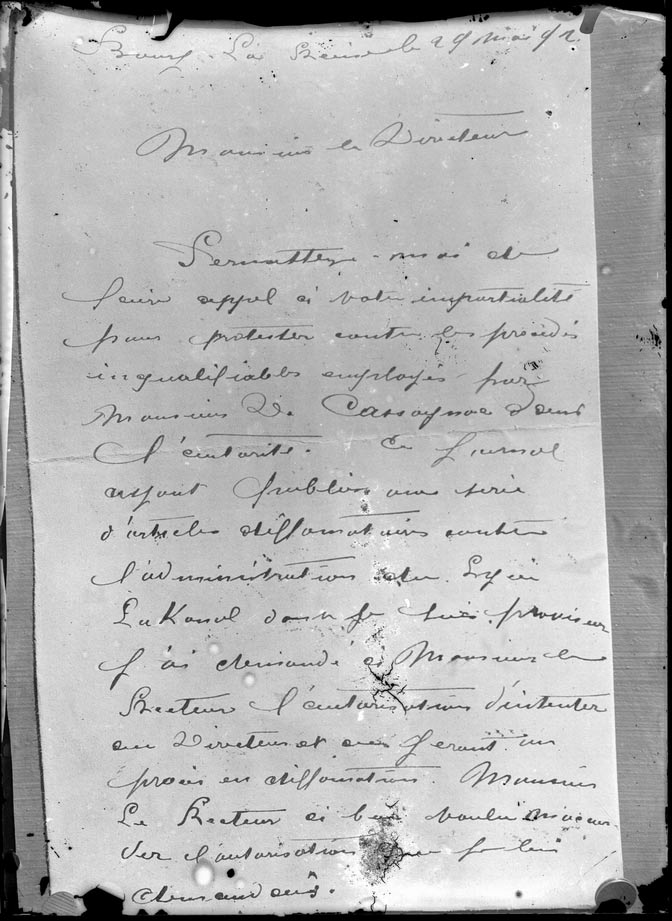 Bourg-La Reine le 29 mai 92
Monsieur le Directeur
Permettez-moi de
faire appel à votre impartialité
pour protester contre les procédés
inqualifiables employés par
Monsieur De Cassagnac dans
l'autorité. Ce Journal
ayant publié une série
d'articles diffamatoires contre
l'administration du Lycée
Lakanal dont je suis proviseur
j'ai demandé à Monsieur le
Recteur l'autorisation d'intenter
au Directeur et au Gérant un
procès en diffamation. Monsieur
Le Recteur a bien voulu m'accor-
der l'autorisation que je lui
demandais.